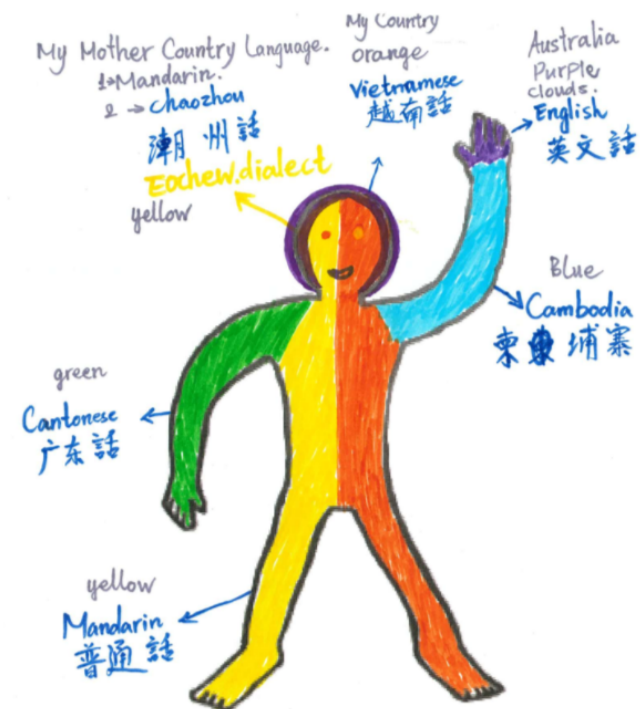 My Mother Country Language.
1→Mandarin.
2 → chaozhou
潮州話
Eochew.dialect
yellow
My Country
orange
Vietnamese
越南話
Australia
Purple
clouds.
English
英文話
Blue
Cambodia
柬埔寨
green
Cantonese
广东話
yellow
Mandarin
普通話